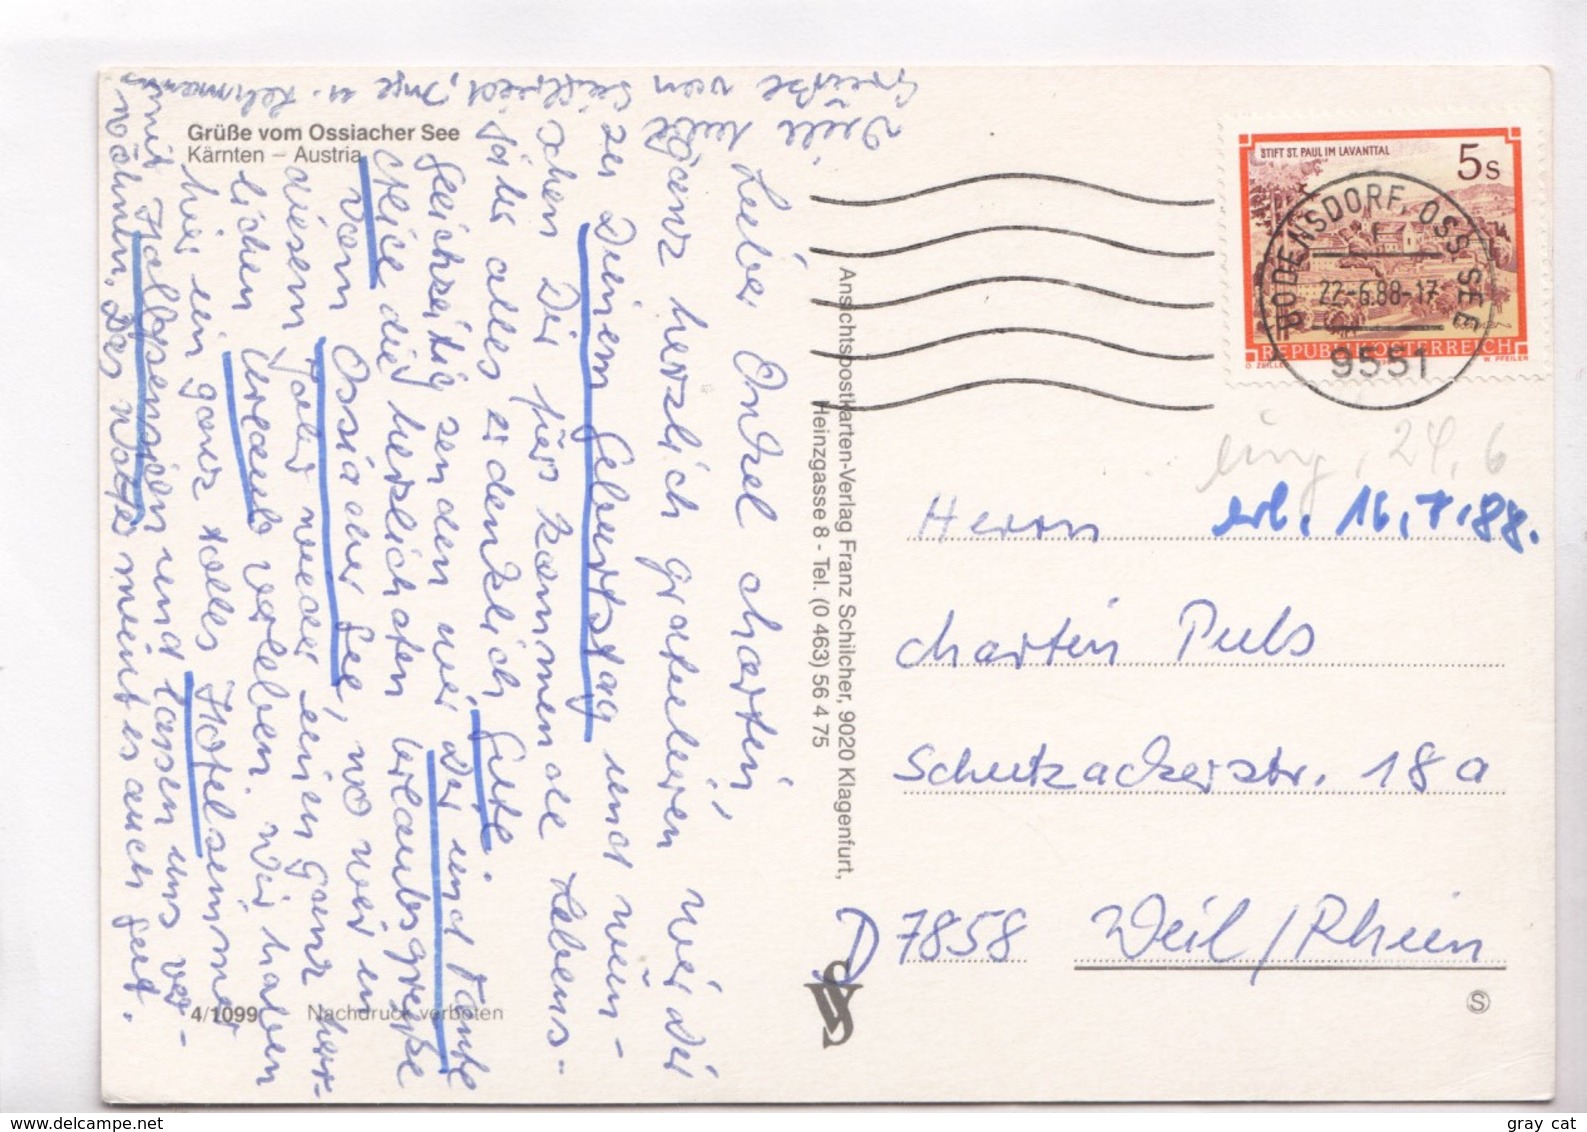 Grüße vom Ossiacher See
Kärnten – Austria
Lieber Onkel Martin,
ganz herzlich gratulieren wir Dir
zu Deinem Geburtstag und wün-
schen Dir fürs kommende Lebens-
jahr alles erdenklich Gute.
Gleichzeitig senden wir Dir und Tante
Alice die herzlichsten Urlaubsgrüße
vom Ossiacher See, wo wir in
diesem Jahr wieder einen ganz herr-
lichen Urlaub verleben. Wir haben
hier ein ganz tolles Hotelzimmer
mit Halbpension und lassen uns ver-
wöhnen. Das Wetter meint es auch gut.
Viele liebe
Grüße von Seifried, Inge u. Lehrmann
4/1099 Nachdruck verboten
Ansichtspostkarten-Verlag Franz Schilcher, 9020 Klagenfurt,
Heinzgasse 8 - Tel. (0 463) 56 4 75
VS
STIFT ST. PAUL IM LAVANTTAL
5 S
REPUBLIK ÖSTERREICH
W. PFEILER
BODENSDORF, OSS. SEE
22.-6.88-17
9551
eing. 24.6
erl. 16.7.88.
Herrn
Martin Puls
Schutzackerstr. 18a
D 7858 Weil/Rhein
S
www.delcampe.net
gray cat